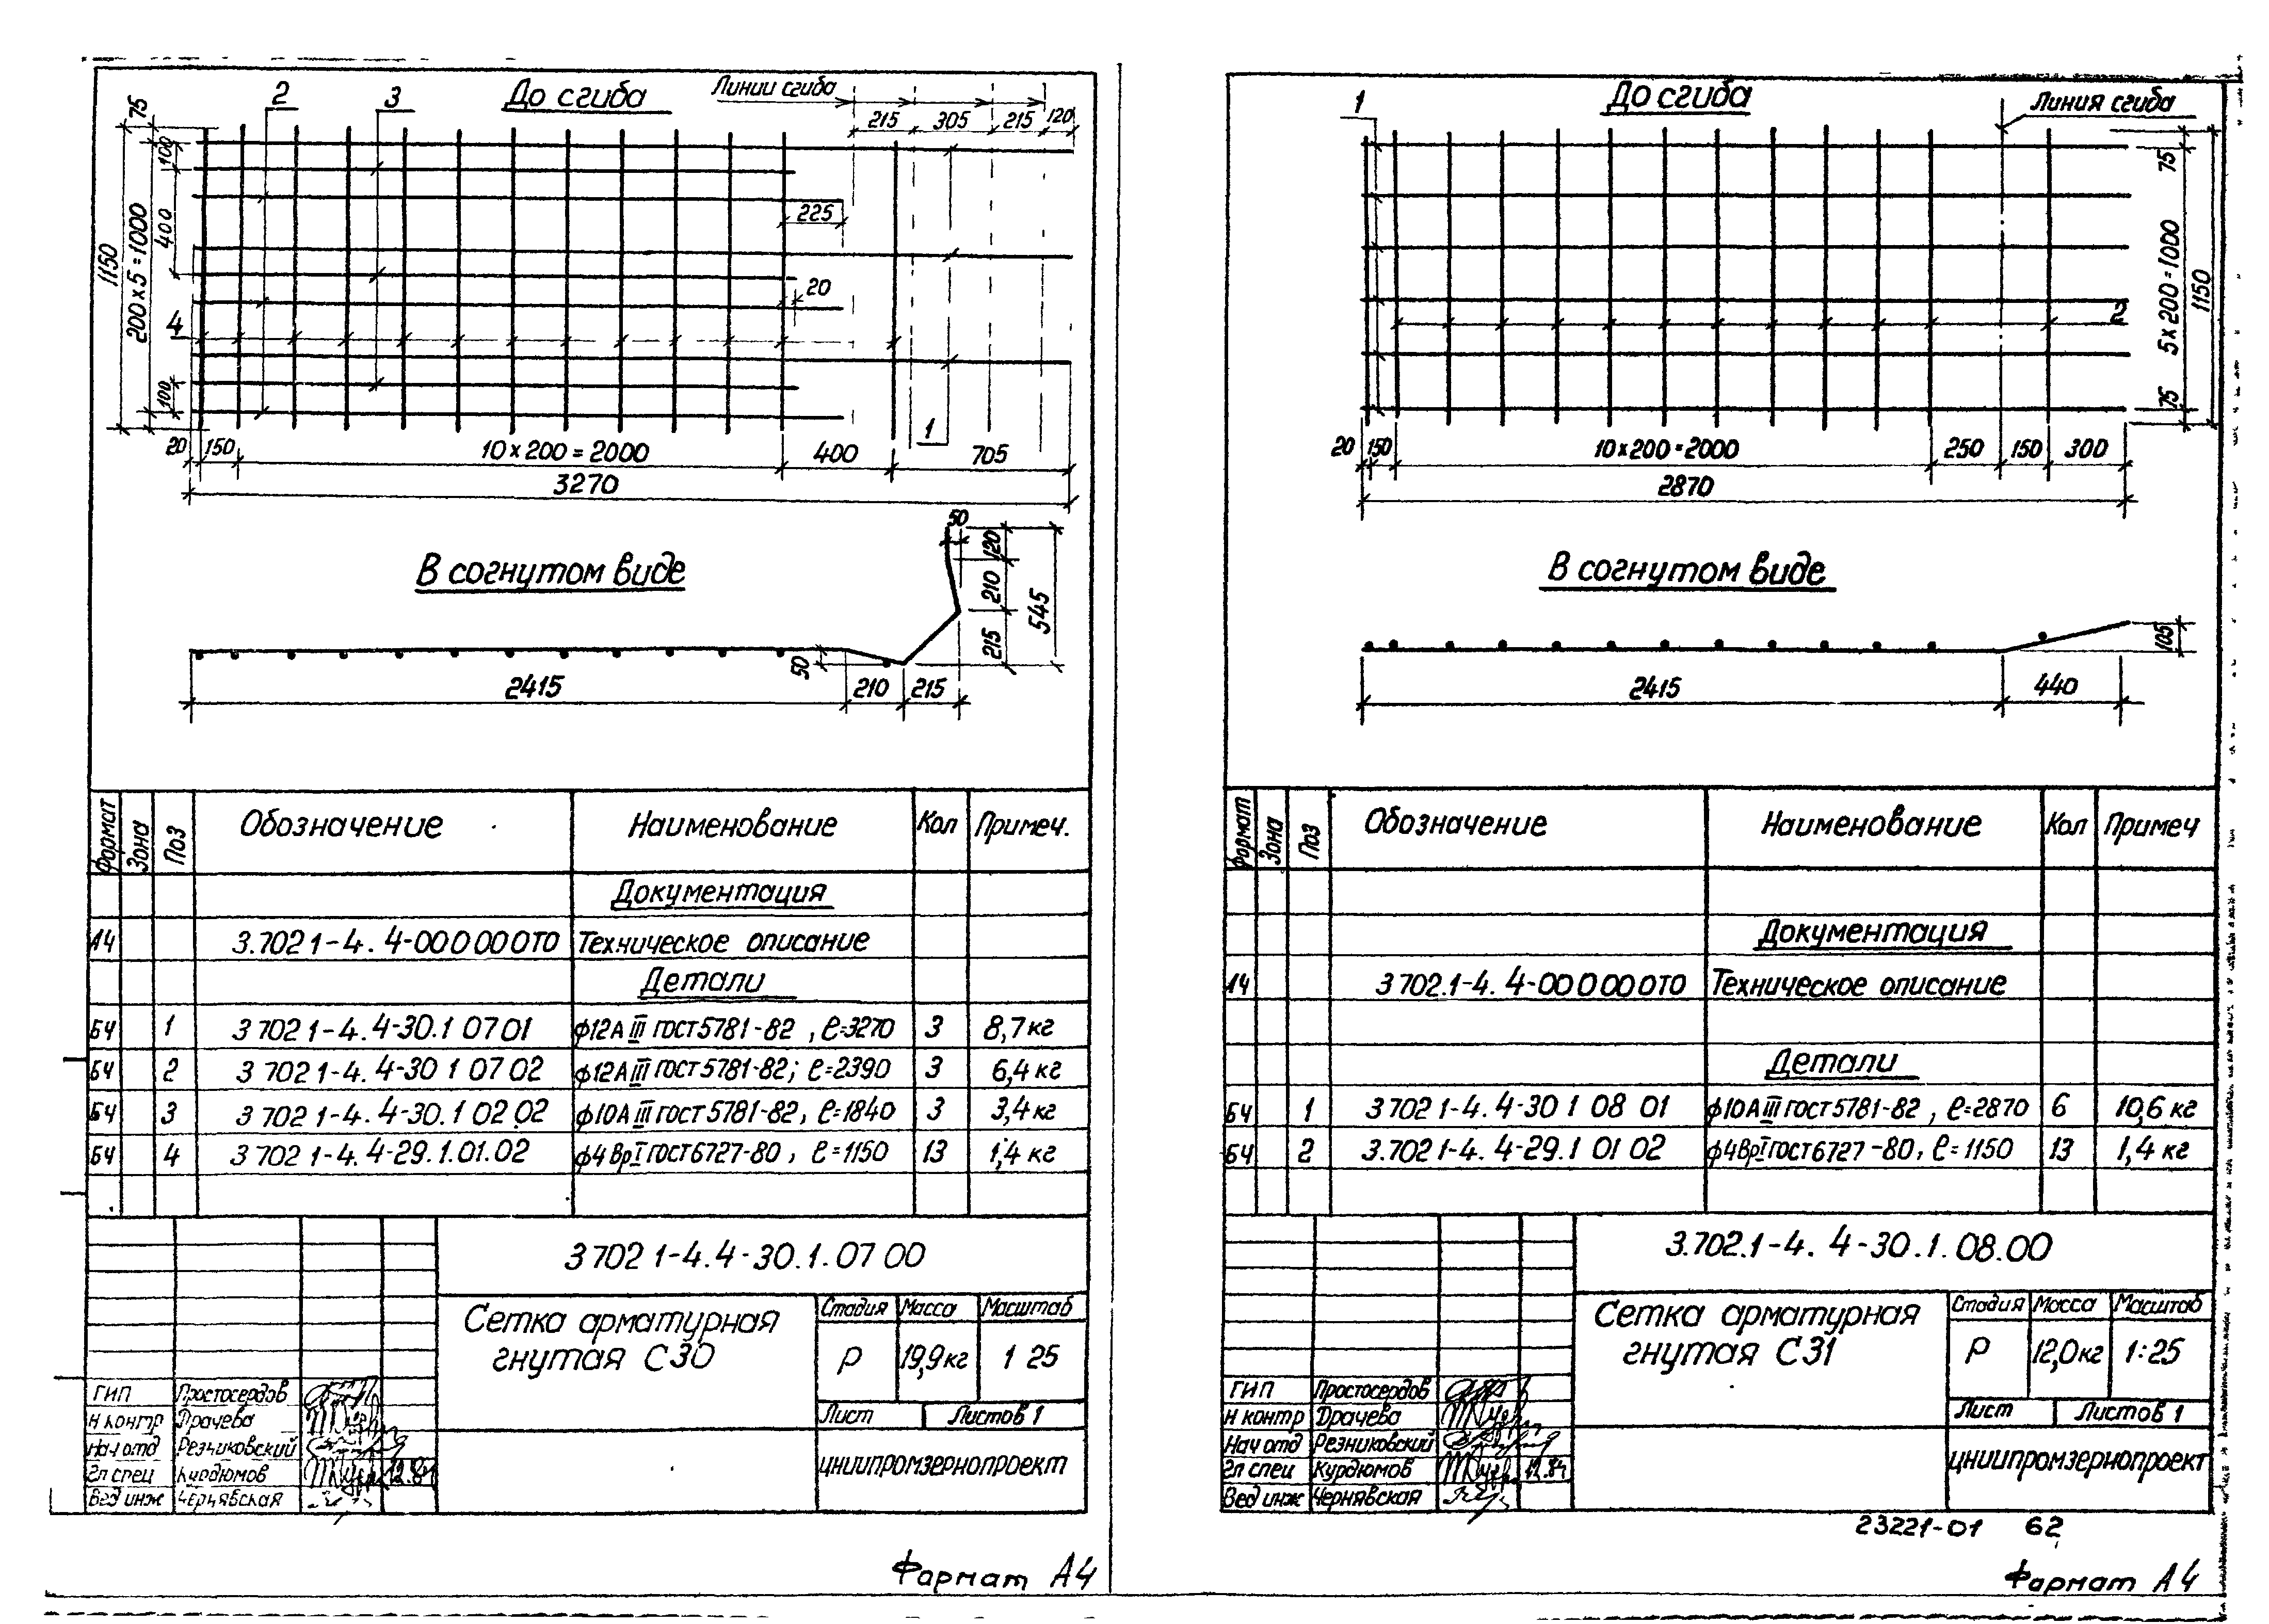 До сгиба
Линии сгиба
2
3
215
305
215
120
75
100
400
1150
200х5=1000
225
20
4
100
1
20
150
10х200=2000
400
705
3270
В согнутом виде
50
120
210
545
215
50
2415
210
215
Формат
Зона
Поз
Обозначение
Наименование
Кол
Примеч.
Документация
А4 3.702 1-4. 4-00 0 00 0ТО Техническое описание
Детали
БЧ 1 3 702 1-4. 4-30.1 07 01 ф12АIII ГОСТ 5781-82 , ℓ=3270 3 8,7кг
БЧ 2 3 702 1-4. 4-30 1 07 02 ф12АIII ГОСТ 5781-82; ℓ=2390 3 6,4 кг
БЧ 3 3 702 1-4. 4-30.1 02 02 ф10АIII ГОСТ 5781-82, ℓ=1840 3 3,4 кг
БЧ 4 3 702 1-4. 4-29.1.01.02 ф4ВрI ГОСТ 6727-80 , ℓ=1150 13 1,4 кг
3 702 1-4.4-30.1.07 00
Сетка арматурная
гнутая С30
Стадия Масса Масштаб
Р 19,9кг 1 25
Лист Листов 1
ЦНИИПРОМЗЕРНОПРОЕКТ
ГИП Простосердов
Н контр Драчева
Нач отд Резниковский
Гл спец Курдюмов 12.84
Вед инж Чернявская
Формат А4
До сгиба
Линия сгиба
1
75
5х200=1000
1150
2
75
20
150
10х200=2000
250
150
300
2870
В согнутом виде
105
2415
440
Формат
Зона
Поз
Обозначение
Наименование
Кол
Примеч
Документация
А4 3 702.1-4. 4-00 0 00 0ТО Техническое описание
Детали
БЧ 1 3 702 1-4. 4-30 1 08 01 ф10АIII ГОСТ 5781-82 , ℓ=2870 6 10,6 кг
БЧ 2 3.702 1-4. 4-29.1 01 02 ф4ВрI ГОСТ 6727-80, ℓ=1150 13 1,4 кг
3.702.1-4. 4-30.1.08.00
Сетка арматурная
гнутая С31
Стадия Масса Масштаб
Р 12,0кг 1:25
Лист Листов 1
ЦНИИПРОМЗЕРНОПРОЕКТ
ГИП Простосердов
Н контр Драчева
Нач отд Резниковский
Гл спец Курдюмов 12.84
Вед инж Чернявская
23221-01 62
Формат А4